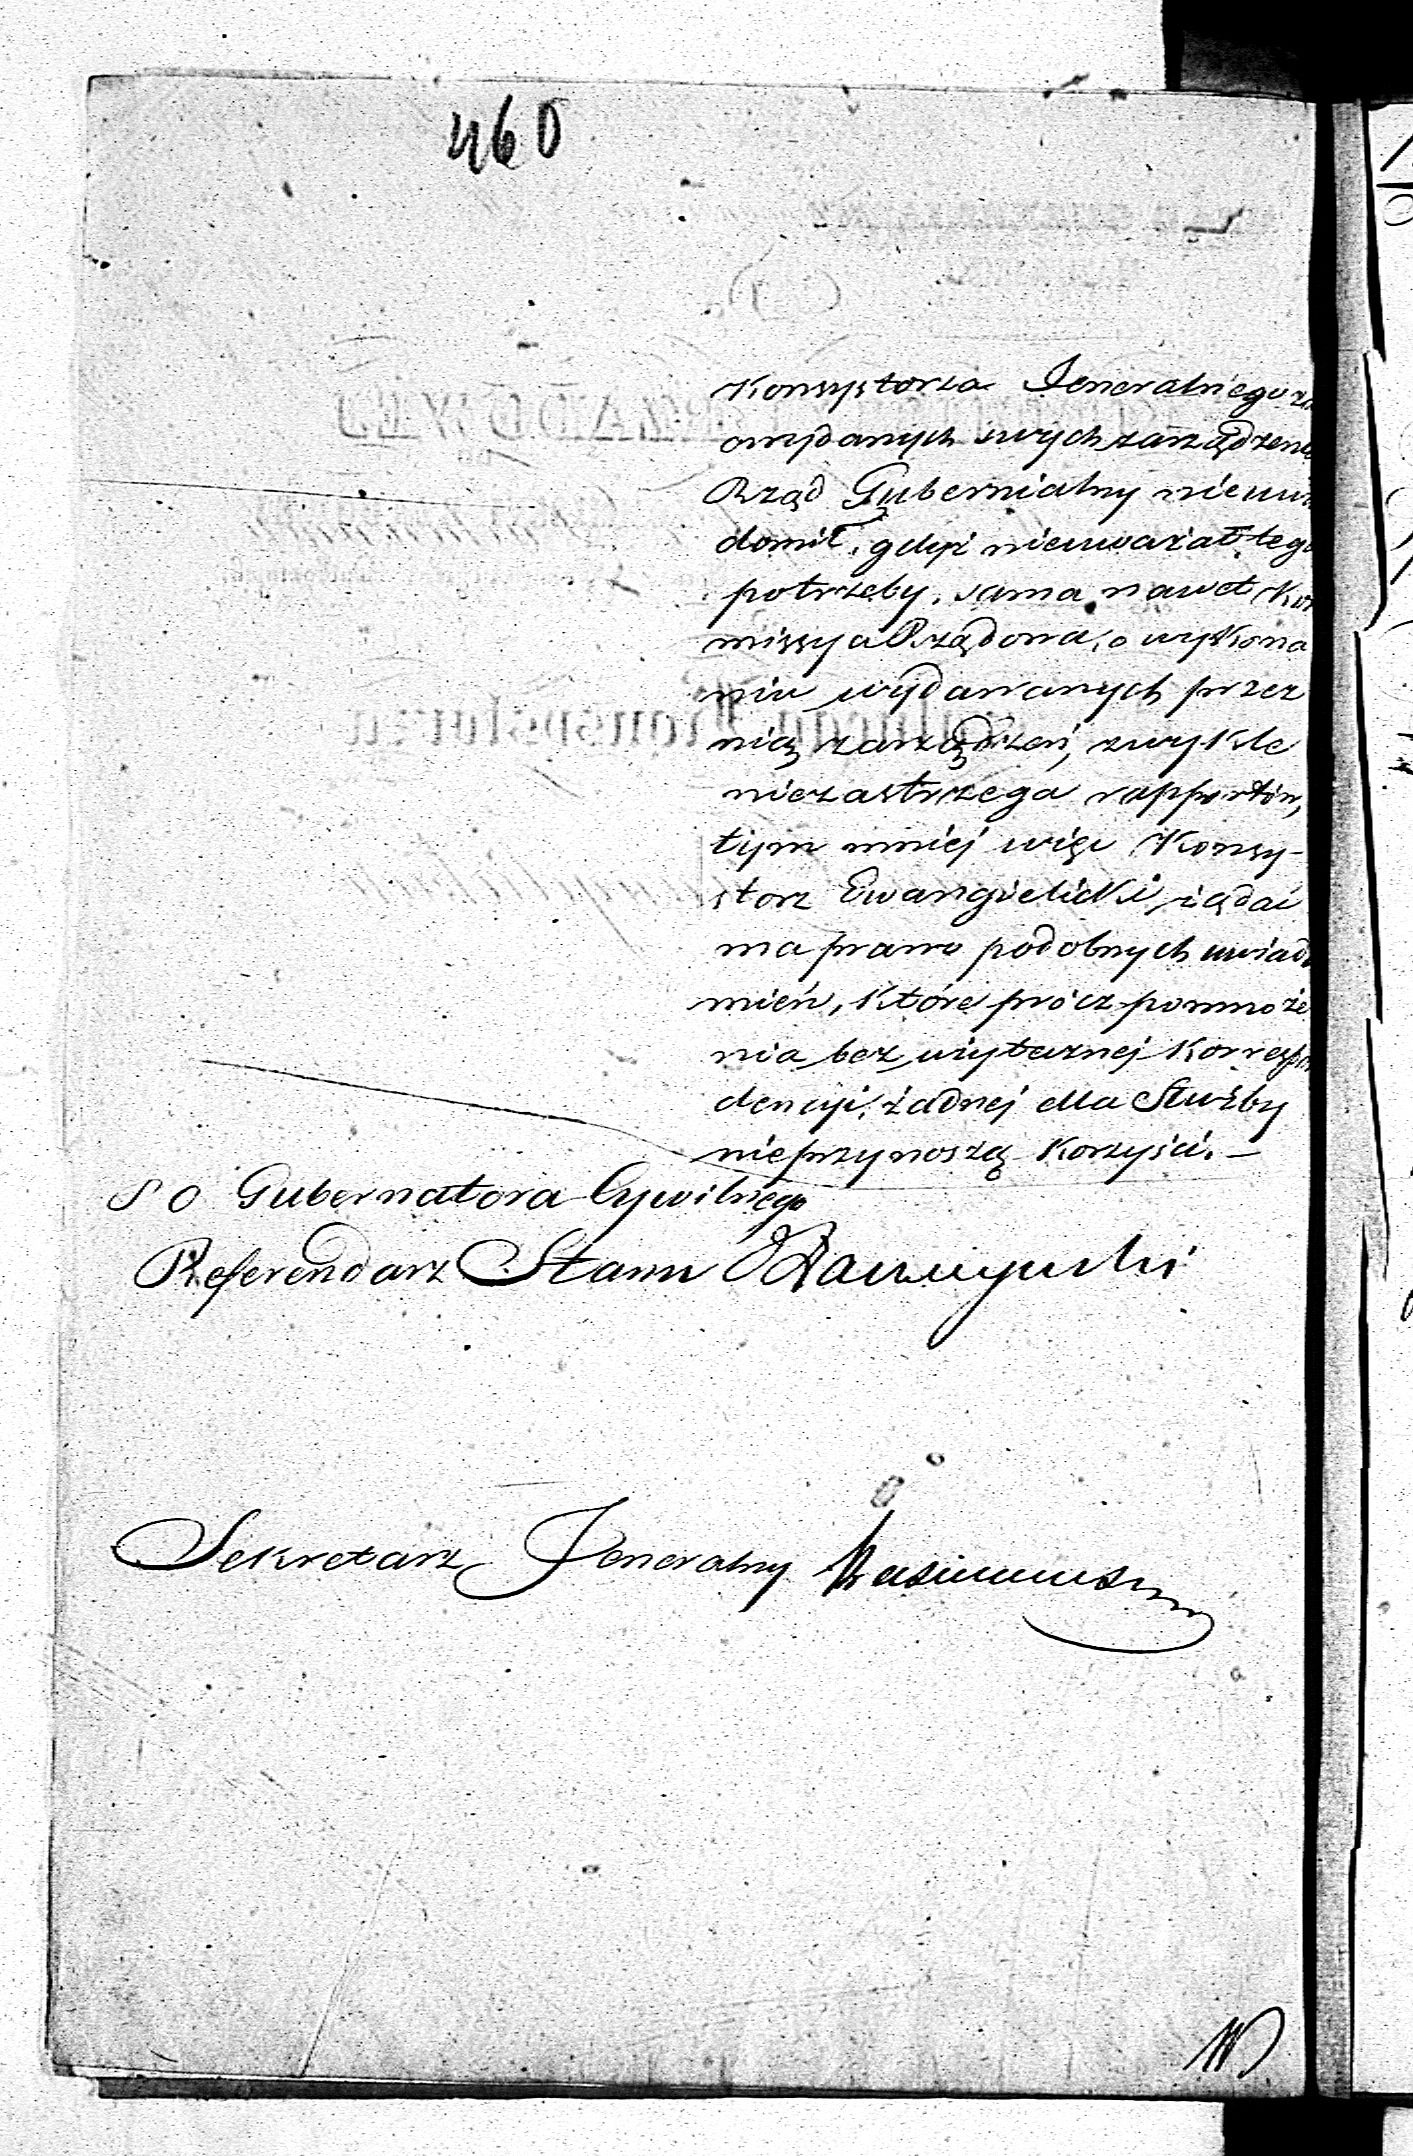 460
Konsystorza Jeneralnego
owydanych swych zarządzeni
Rząd Gubernialny nieuwia
domił, gdyż nieuważał tego
potrzeby, sama nawet Kom
missya Rządowa, o wykona
niu wydawanych przez
nią zarządzeń, zwykle
niezastrzega rapportów,
tym mniej więc Konsy-
storz Ewangielicki, żądać
ma prawo podobnych uwiado
mień, które prócz pomnoże
nia bez użytecznej Korrespon
dencyi, żadnej dla Służby
nieprzynoszą korzyści. —
S O Gubernatora Cywilnego
Referendarz Stanu
Sekretarz Jeneralny